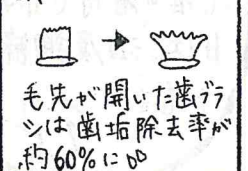 毛先が開いた歯ブラ
シは歯垢除去率が
約60%に